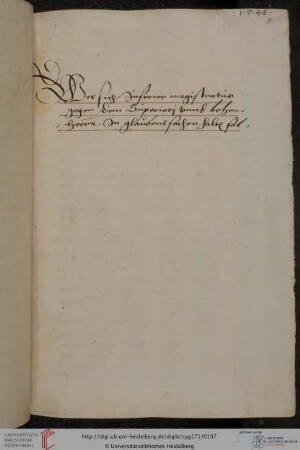 1·5·48·
Wes sich Inferior magistratus
gegen dem Superiori vnnd lehen-
herrn. In glaubens sachen halt sol.
UNIVERSITÄTS-
BIBLIOTHEK
HEIDELBERG
http://digi.ub.uni-heidelberg.de/diglit/cpg171/0197
© Universitätsbibliothek Heidelberg